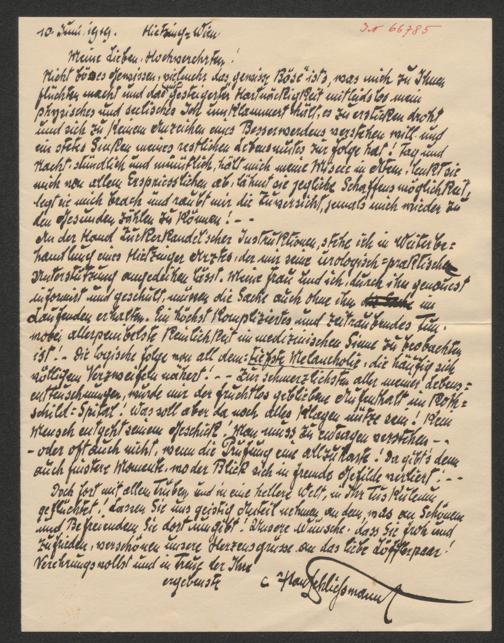 10. Juni. 1919. Hietzing-Wien. I.N 66785
Meine Lieben, Hochverehrten!
Nicht böses Gewissen, vielmehr das „gewisse Böse" ist's, was mich zu Ihnen
flüchten macht und das gesteigerter Hartnäckigkeit mitleidslos mein
physisches und seelisches Ich umklammert hält, es zu ersticken droht
und sich zu keinen Anzeichen eines Besserwerdens verstehen will und
ein stetes Sinken meines restlichen Lebensmutes zur Folge hat! Tag und
Nacht, stündlich und minütlich, hält mich meine Misere in Atem, lenkt sie
mich von allem Erspriesslichen ab, lähmt sie jegliche Schaffensmöglichkeit,
legt sie mich brach und raubt mir die Zuversicht, jemals mich wieder zu
den Gesunden zählen zu können! - -
An der Hand Zuckerkandel'scher Instruktionen, stehe ich in Weiterbe=
handlung eines Hietzinger Arztes, der mir seine urologisch=praktische
Unterstützung angedeihen lässt. Meine Frau und ich, durch ihn genauest
informirt und geschult, müssen die Sache auch ohne ihn im
Laufenden erhalten. Ein höchst kompliziertes und zeitraubendes Tun,
wobei allerpeinlichste Reinlichkeit im medizinischen Sinne zu beobachten
ist! - Die logische Folge von all dem: tiefste Melancholie, die häufig sich
völligem Verzweifeln nähert! - - Zur schmerzlichsten aller meiner Lebens=
enttäuschungen, wurde mir der fruchtlos gebliebene Aufenthalt im Roth=
schild=Spital! Was soll aber da noch alles Klagen nütze sein! Kein
Mensch entgeht seinem Geschick! Man muss zu ertragen verstehen - -
- oder oft auch nicht, wenn die Prüfung eine allzustarke! Da gibt's denn
auch finstere Momente, wo der Blick sich in fremde Gefilde verliert! - -
Doch fort mit allem Trüben und in eine hellere Welt, in Ihr Tuskulum
geflüchtet! Lassen Sie uns geistig Anteil nehmen an dem, was an Schönem
und Befreundem Sie dort umgibt! Unsere Wünsche, dass Sie froh und
zufrieden, verschönen unsere Herzensgrüsse an das liebe Löfflerpaar!
Verehrungsvollst und in Treue Ihr Ihnen
ergebenste Hans Schliessmann